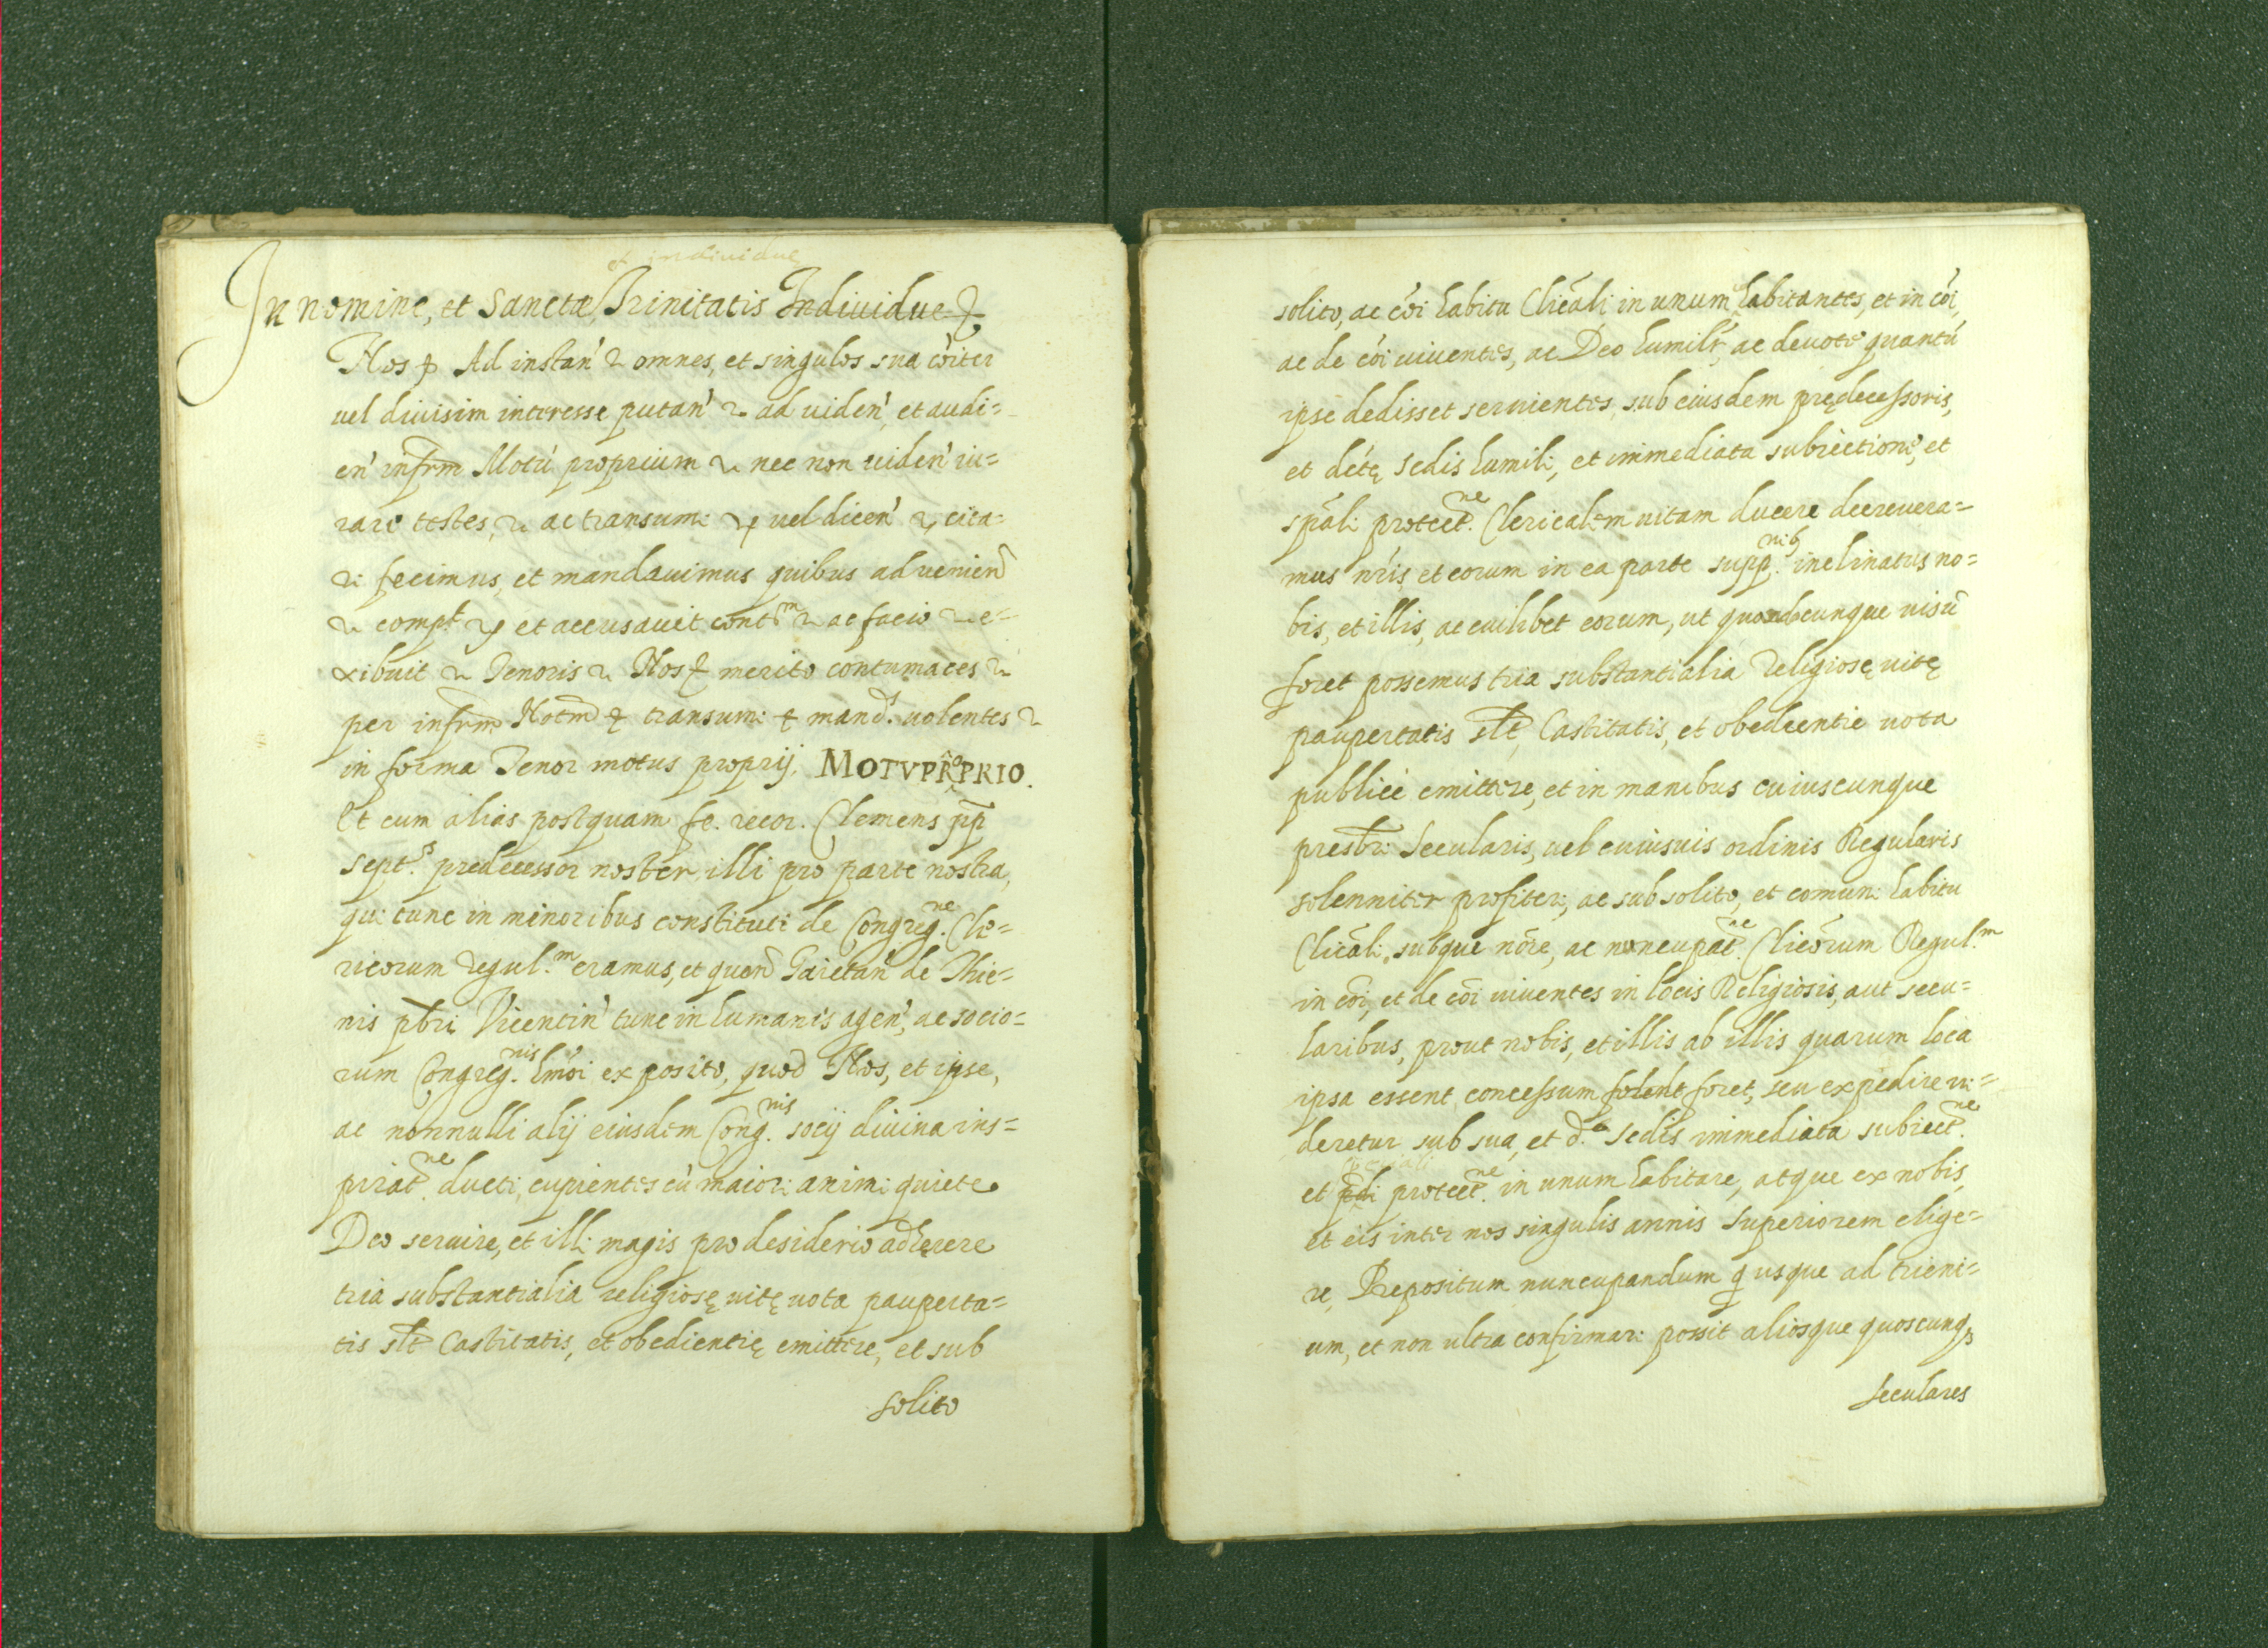 et individue
In nomine, et Sanctæ Trinitatis Individue &
Nos & Ad instan' & omnes, et singulos sua cõiter
uel diuisim interesse putan' & ad uiden', et audi=
en' infrm Motũ proprium & nec non uiden' iu=
rare testes, & ac transumi & uel dicen' & cita=
ri fecimus, et mandauimus quibus aduenien
& compt & et accusauit cont.m & ac facio & e=
xibuit & Tenoris & Nos & merito contumaces &
per infrm Notm & transumi & mand.s uolentes &
in forma Tenor motus proprij. MOTVPROPRIO.
Et cum alias postquam fe. recor. Clemens pp
sept.s predecessor noster, illi pro parte nostra,
qui tunc in minoribus constituti de Congreg.ne Cle=
ricorum regul.m eramus, et quend Gaietan' de Thie=
nis pbri Vicentin' tunc in humanis agen', ac socio=
rum Congreg.nis hmõi exposito, quod Nos, et ipse,
ac nonnulli alij eiusdem Cong.nis socij diuina ins=
pirat.ne ducti, cupientes cũ maiori animi quiete
Deo seruire, et illi magis pro desiderio adherere
tria substantialia religiosę uitę uota pauperta=
tis slt Castitatis, et obedientię emittere, et sub
solito
solito, ac cõi habitu Clicãli in unum habitantes, et in cõi,
ac de cõi uiuentes, ac Deo humilr, ac deuote quantũ
ipse dedisset seruientes, sub eiusdem prędecessoris,
et dćtę sedis humili, et immediata subiectione, et
spãli protect.ne Clericalem uitam ducere decreuera=
mus nris, et eorum in ea parte supp.nib inclinatus no=
bis, et illis, ac cuilibet eorum, ut quandocunque uisũ
foret possemus tria substantialia Religiosę uitę
paupertatis slt, Castitatis, et obedientie uota
publicè emittere, et in manibus cuiuscunque
presbri Secularis, uel cuiusuis ordinis Regularis
solenniter profiteri, ac sub solito, et comuni habitu
Clicãli, subque nõre, ac noncupat.ne Clicõrum Regul.m
in cõi, et de cõi uiuentes in locis Religiosis, aut secu=
laribus, prout nobis, et illis ab illis quarum loca
ipsa essent concessum folent foret, seu expedire ui=
deretur sub sua, et d.ę Sedis immediata subiect.ne
et pdi protect.ne in unum habitare, atque ex nobis,
et eis inter nos singulis annis Superiorem elige=
re, Prepositum nuncupandum q usque ad trieni=
um, et non ultra confirmari possit aliosque quoscunq3
seculares